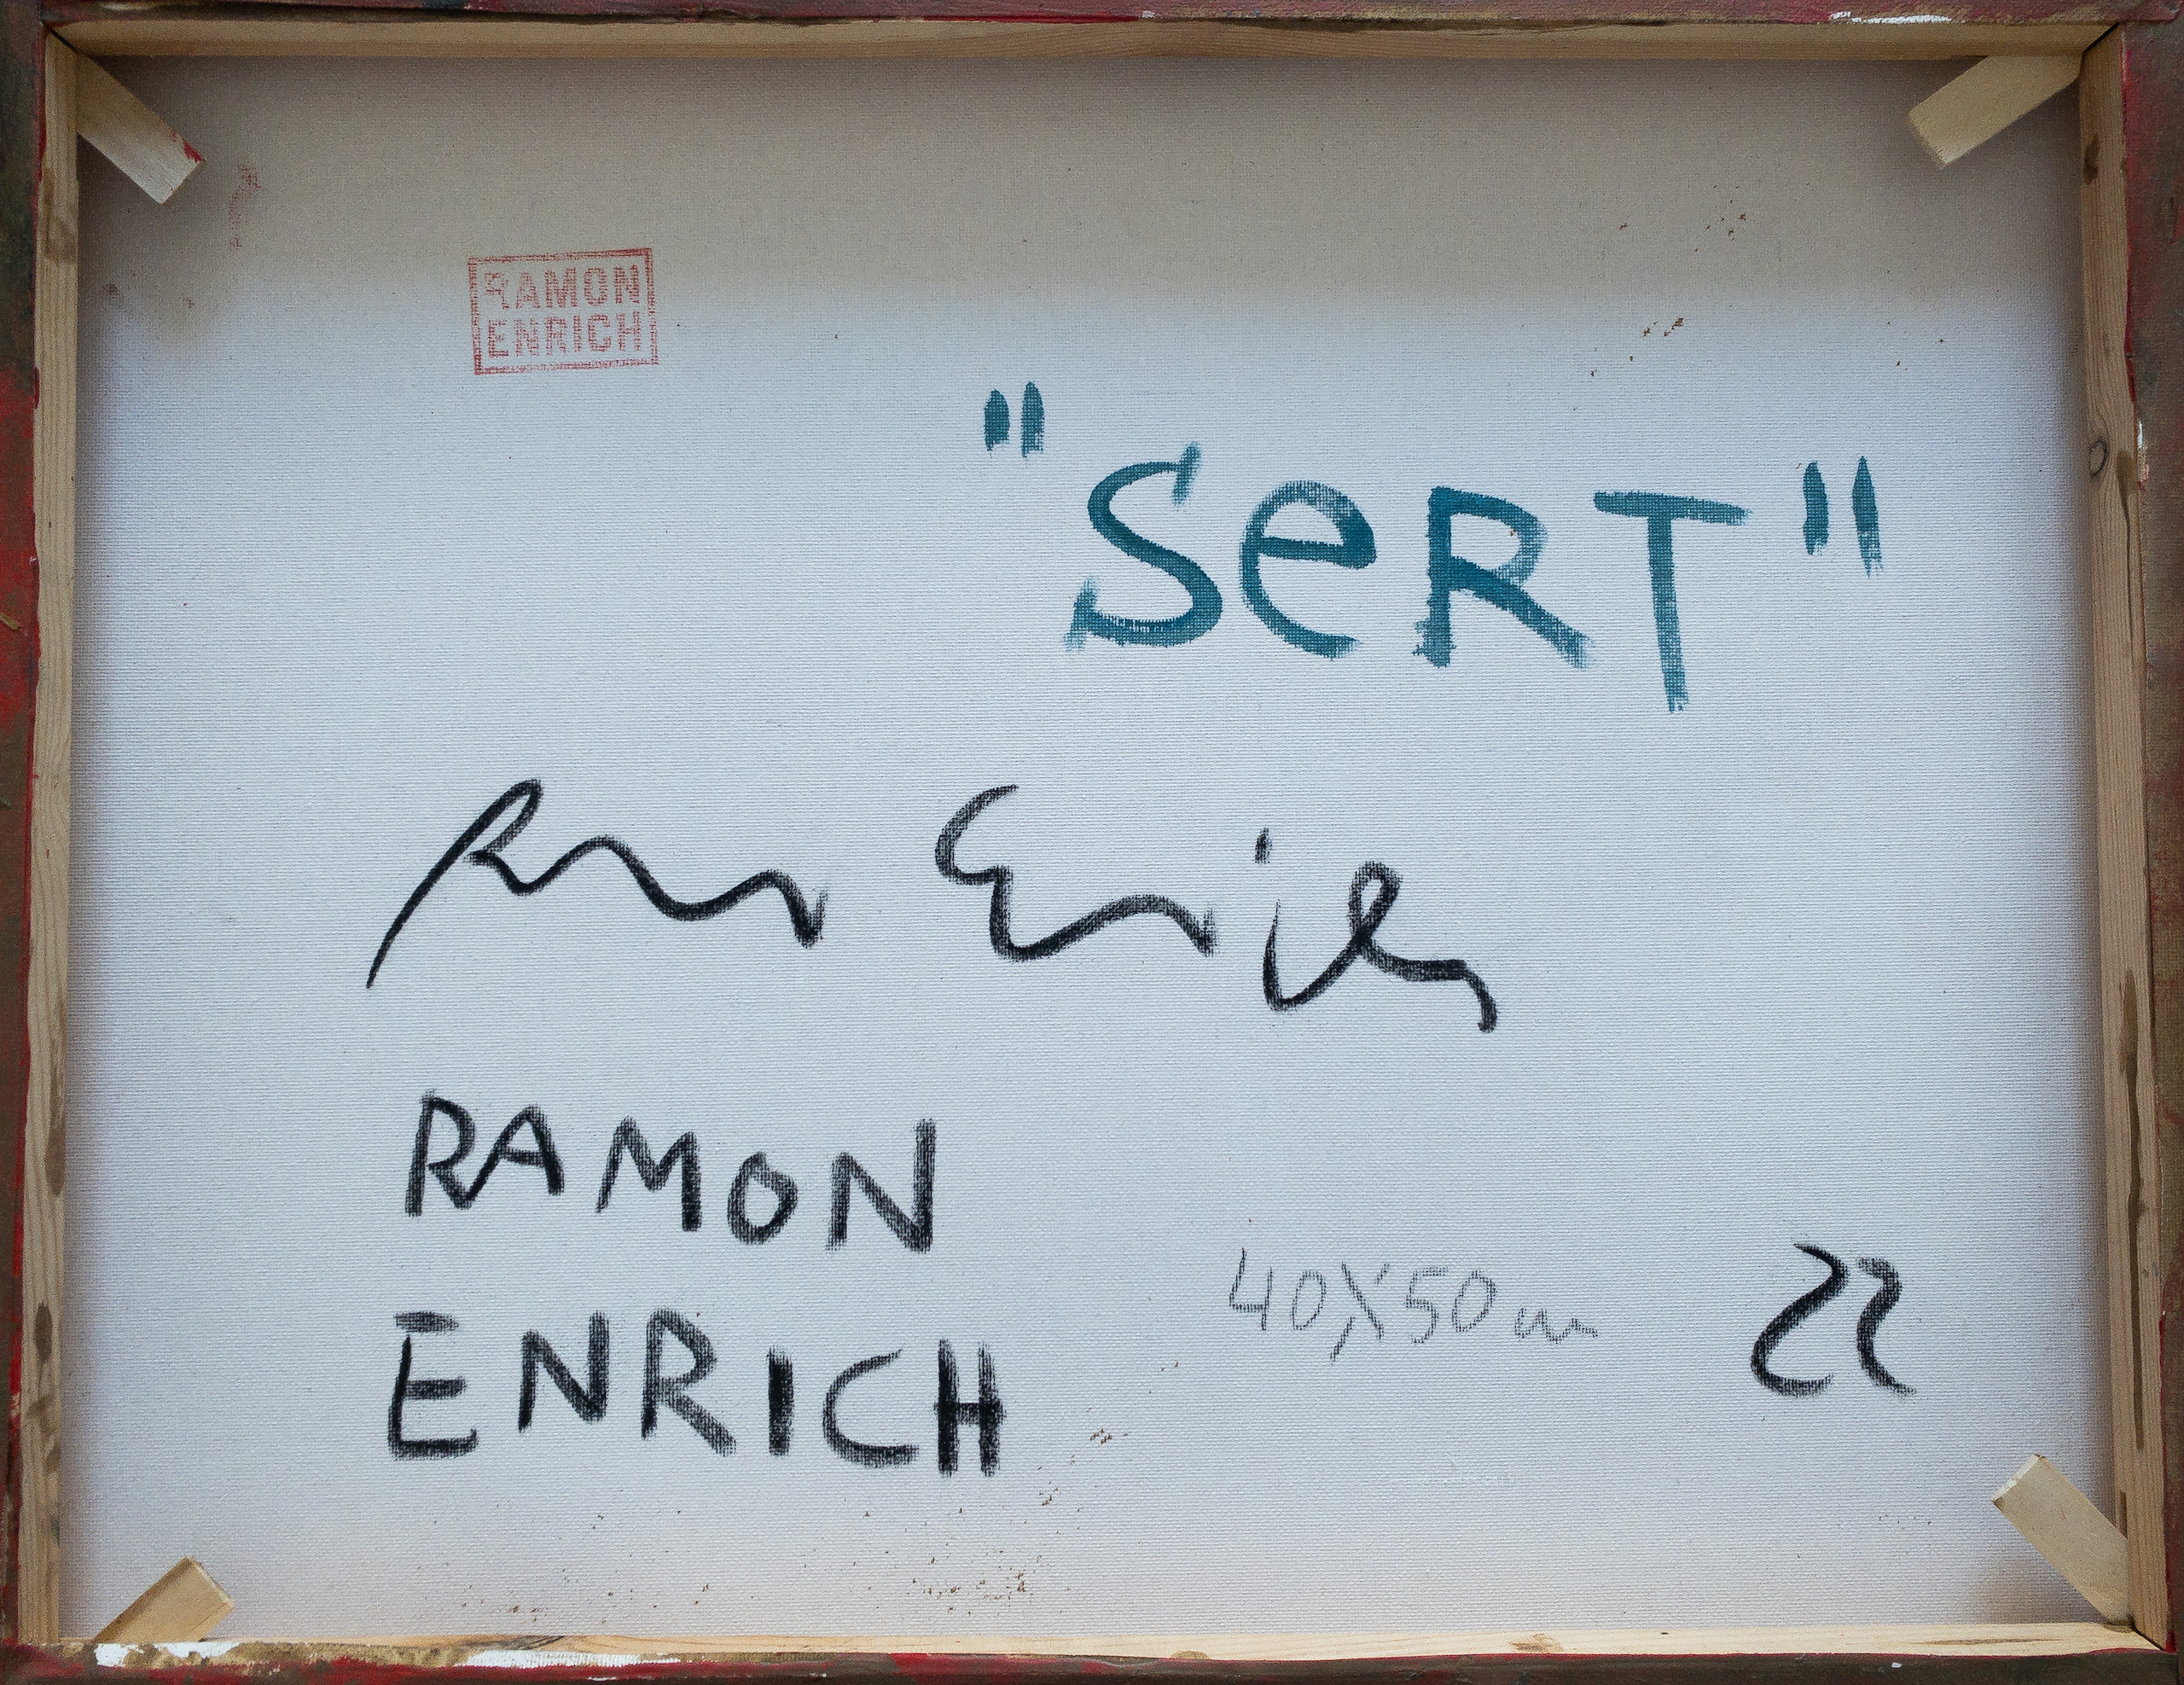 RAMON
ENRICH
"SeRT"
Ramon Enrich
RAMON
ENRICH
40X50 cm
22